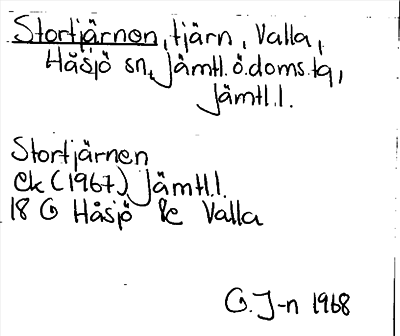 Stortjärnen, tjärn, Valla,
Håsjö sn, Jämtl. ö. doms. tq,
Jämtl. l.
Stortjärnen
ek (1967) Jämtl. l.
18 G Håsjö 8c Valla
G. J-n 1968